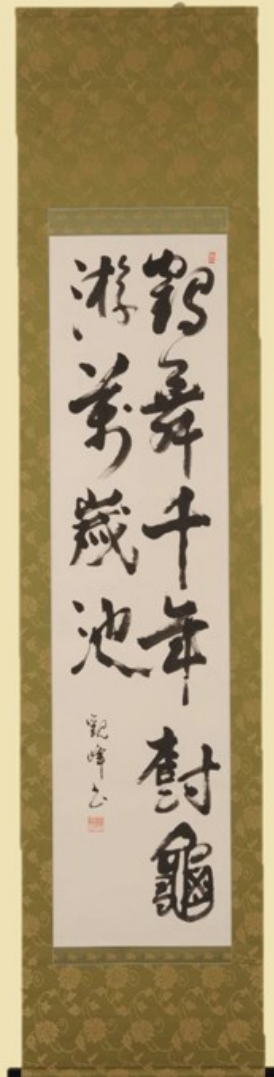 鶴舞千年樹龜
游萬歳池
觀峰書